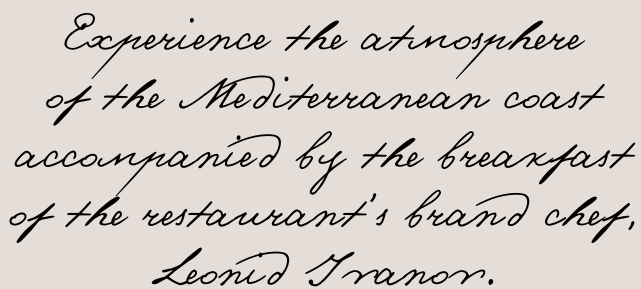 Experience the atmosphere
of the Mediterranean coast
accompanied by the breakfast
of the restaurant's brand chef,
Leonid Ivanov.